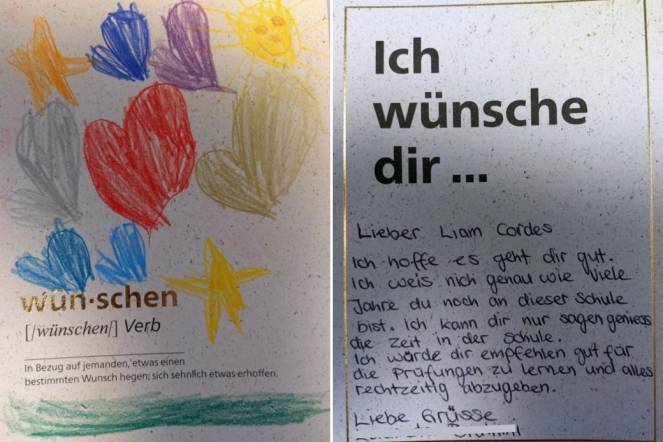 wün·schen
[/wünschen/] Verb
In Bezug auf jemanden, etwas einen
bestimmten Wunsch hegen; sich sehnlich etwas erhoffen.
Ich
wünsche
dir ...
Lieber Liam Cordes
Ich hoffe es geht dir gut.
Ich weis nich genau wie viele
Jahre du noch an dieser Schule
bist. Ich kann dir nur sagen geniess
die Zeit in der Schule.
Ich würde dir empfehlen gut für
die Prüfungen zu lernen und alles
rechtzeitig abzugeben.
Liebe Grüsse